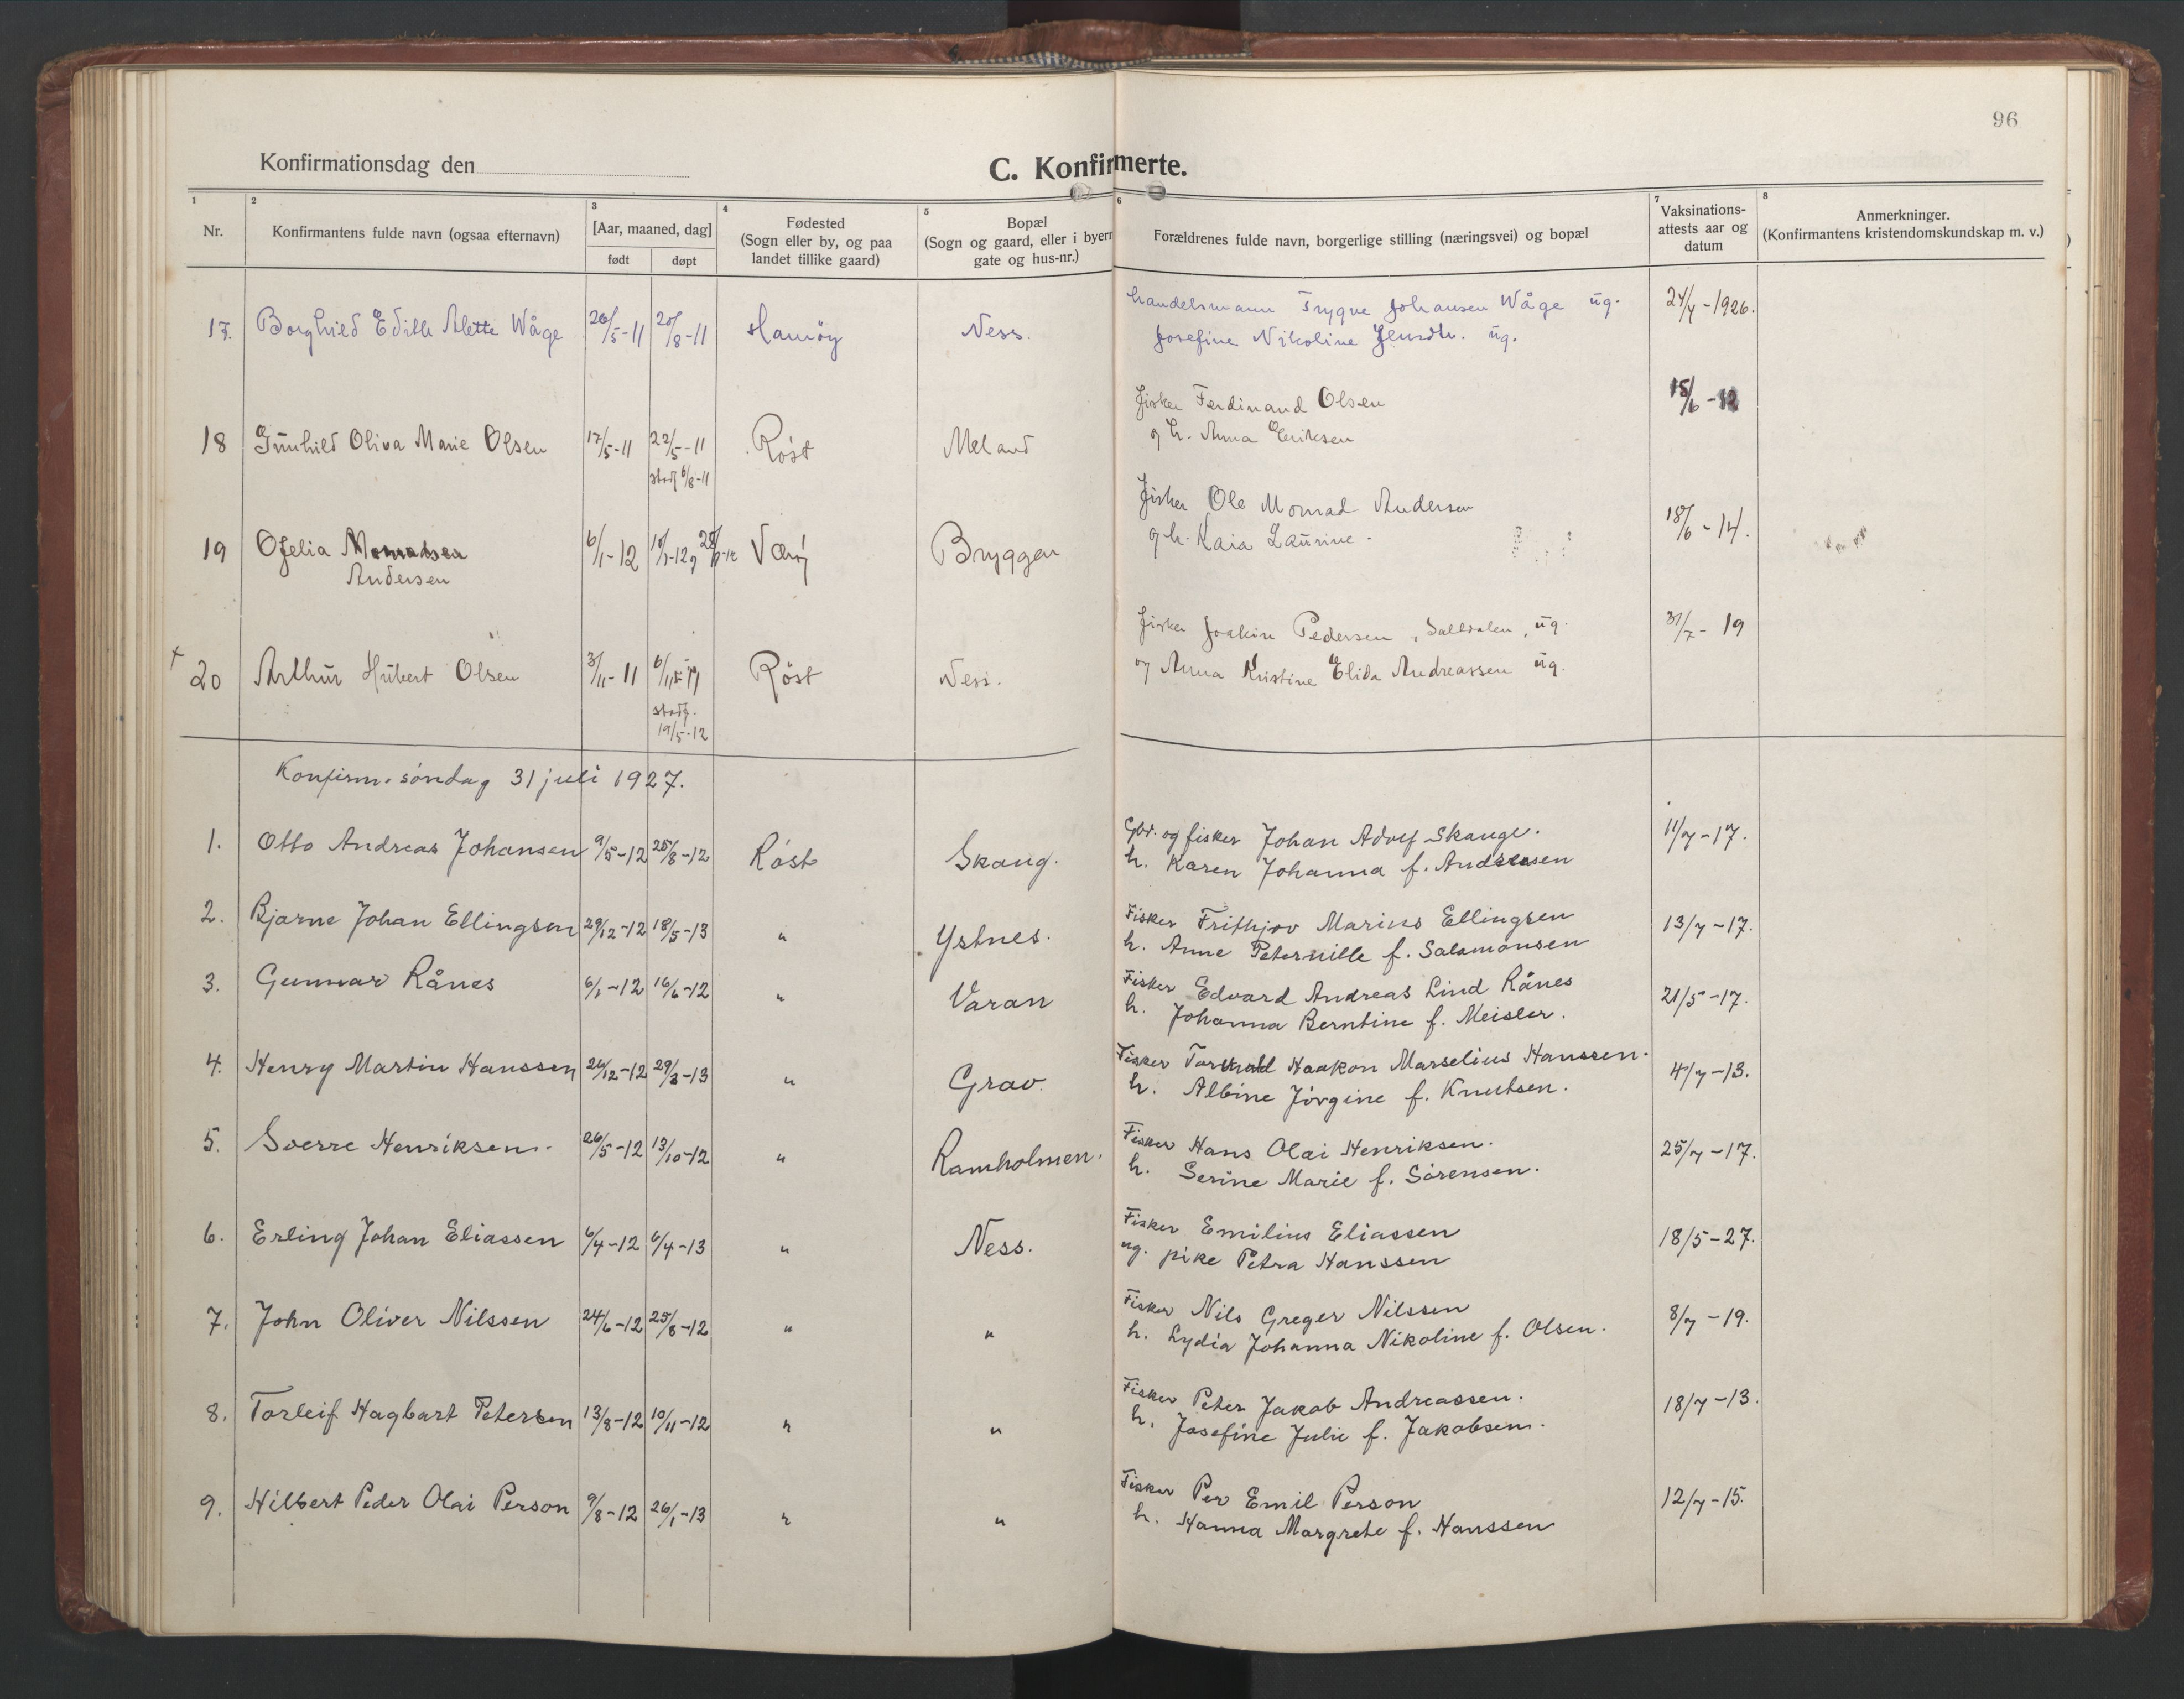 96
Konfirmationsdag den
C. Konfirmerte.
1 2 3 4 5 6 7 8
Nr.
Konfirmantens fulde navn (ogsaa efternavn)
[Aar, maaned, dag]
født døpt
Fødested
(Sogn eller by, og paa
landet tillike gaard)
Bopæl
(Sogn og gaard, eller i byern
gate og hus-nr.)
Forældrenes fulde navn, borgerlige stilling (næringsvei) og bopæl
Vaksinations-
attests aar og
datum
Anmerkninger.
(Konfirmantens kristendomskundskap m. v.)
17. Borghild Edille Alette Wåge 26/5-11 20/8-11 Hamöy Ness. 24/4-1926.
handelsmann Trygve Johansen Wåge ug.
Josefine Nikoline ug.
18 Gunhild Oliva Marie Olsen 17/5-11 22/5-11 Röst Meland 15/6-12
stadf 6/8-11
fisker Ferdinand Olsen
og h. Anna Eriksen
19 Ofelia Monradsen 6/1-12 Værøy Bryggen 18/6-14.
Andersen
fisker Ole Monrad Andersen
og h. Kaia Laurine.
† 20 Arthur Hubert Olsen 3/11-11 Röst Ness. 31/7-19
stadf.
19/5-12
fisker Joakin Pedersen, Saltdalen, ug.
og Anna Kristine Elida Andreassen ug.
Konfirm. söndag 31 juli 1927.
1. Otto Andreas Johansen 9/5-12 25/8-12 Röst Skaug. 11/7-17.
Gbr. og fisker Johan Adolf Skauge.
h. Karen Johanna f. Andreassen
2. Bjarne Johan Ellingsen 29/12-12 18/5-13 " Ystnes. 13/7-17.
Fisker Frithjov Marius Ellingsen
h. Anne Peternille f. Salamonsen
3. Gunnar Rånes 6/1-12 16/6-12 " Varan 21/5-17.
Fisker Edvard Andreas Lind Rånes
h. Johanna Berntine f. Meisler.
4. Henry Martin Hanssen 26/12-12 29/3-13 " Grav. 4/7-13.
Fisker Torvald Haakon Marselius Hanssen.
h. Albine Jörgine f. Knutsen.
5. Sverre Henriksen. 26/5-12 13/10-12 " Ramholmen. 25/7-17.
Fisker Hans Olai Henriksen.
h. Serine Marie f. Sörensen.
6. Erling Johan Eliassen 6/4-12 6/4-13 " Ness. 18/5-27.
Fisker Emilius Eliassen
ug. pike Petra Hanssen
7. John Oliver Nilssen 24/6-12 25/8-12 " " 8/7-19.
Fisker Nils Greger Nilssen
h. Lydia Johanna Nikoline f. Olsen.
8. Torleif Hagbart Petersen 13/8-12 10/11-12 " " 18/7-13.
Fisker Peter Jakob Andreassen.
h. Josefine Julie f. Jakobsen.
9. Hilbert Peder Olai Person 9/8-12 26/1-13 " " 12/7-15.
Fisker Per Emil Person
h. Hanna Margrete f. Hanssen